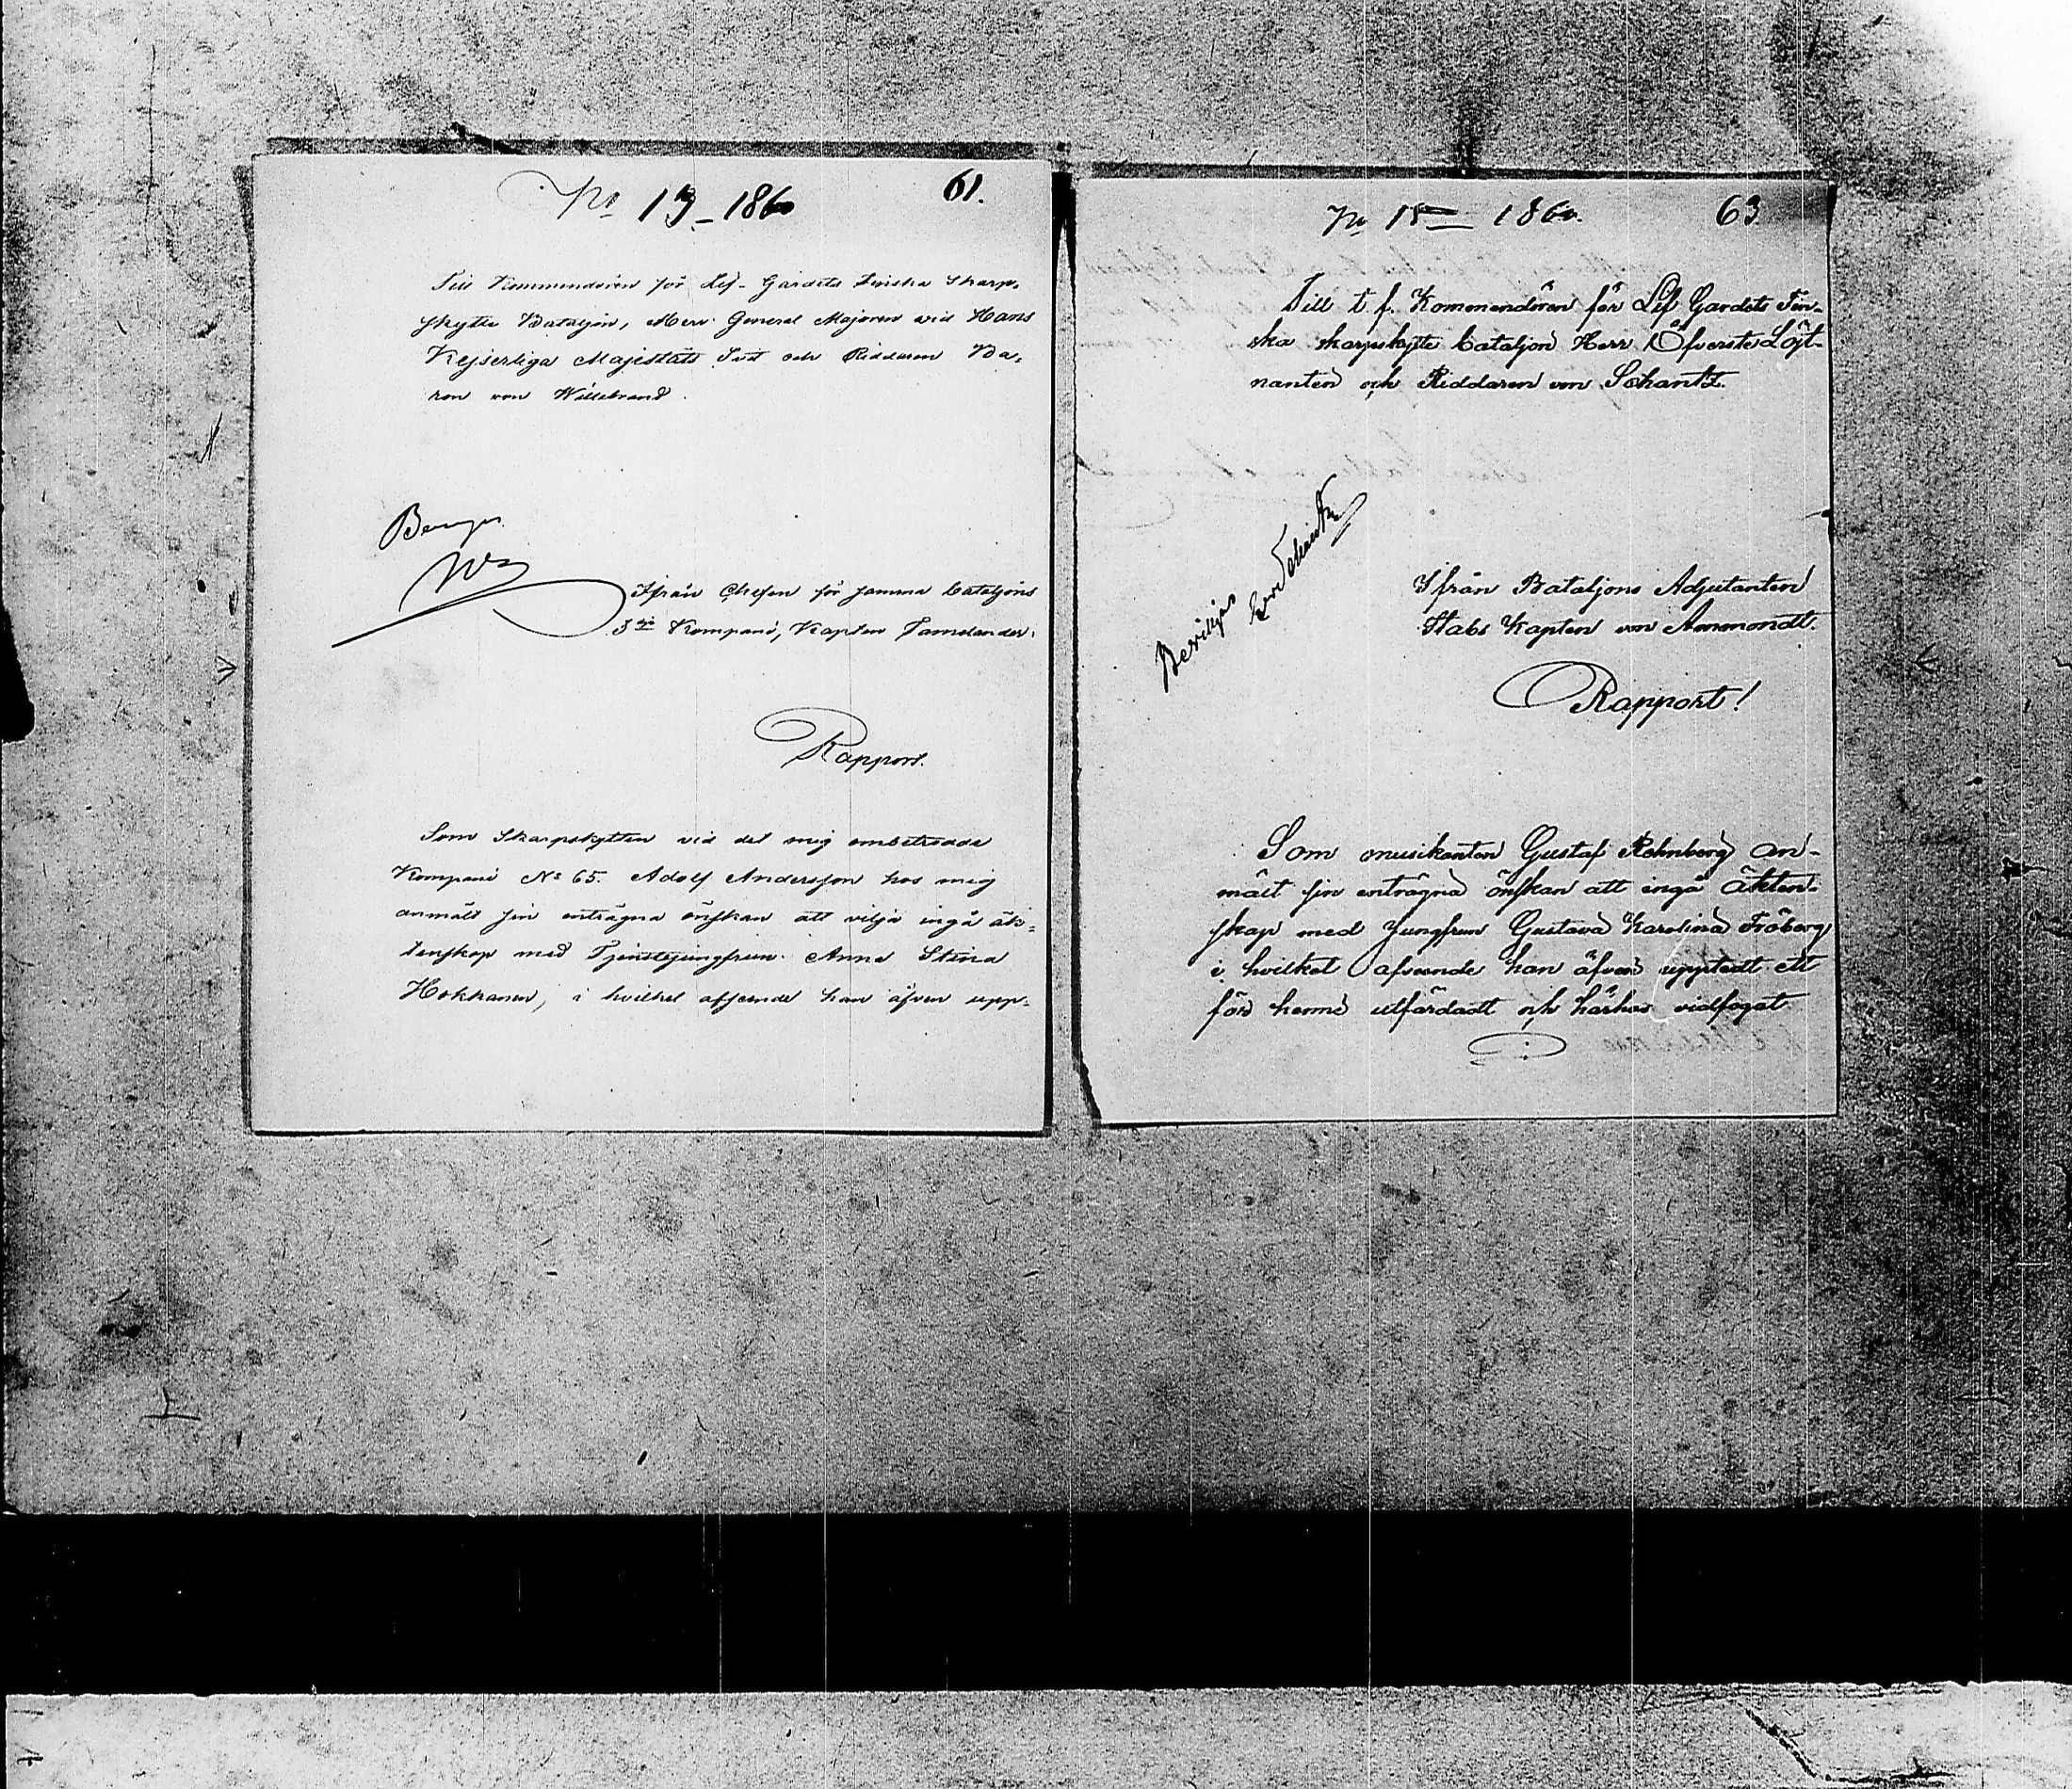 No 13 - 1860
61.
Till Kommendören för Lif-Gardets Finska Skarp-
skytte Bataljon, Herr General Majoren vid Hans
Kejserliga Majestäts Svit och Riddaren Ba-
ron von Willebrand.
Ifrån Chefen för samma bataljons
3dje Kompani, Kapten Tamelander.
Rapport.
Som Skarpskytten vid det mig ombetrodde
Kompani No 65. Adolf Andersson hos mig
anmält sin enträgna önskan att vilja ingå äk-
tenskap med Tjenstejungfrun Anna Stina
Hokkanen, i hvilket afseende han äfven upp-
No 15 1860.
63
Till t. f. Kommendören för Lif Gardets Fin-
ska skarpskytte bataljon Herr Öfverste Löjt-
nanten och Riddaren von Schantz.
Beviljas
von Schantz
Ifrån Bataljons Adjutanten
Stabs Kapten von Ammondt.
Rapport!
Som musikanten Gustaf Rehnberg an-
mält sin enträgna önskan att ingå äkten-
skap med Jungfrun Gustava Karolina Fröberg,
i hvilket afseende han äfven upptedt ett
för henne utfärdadt och härhos vidfogat